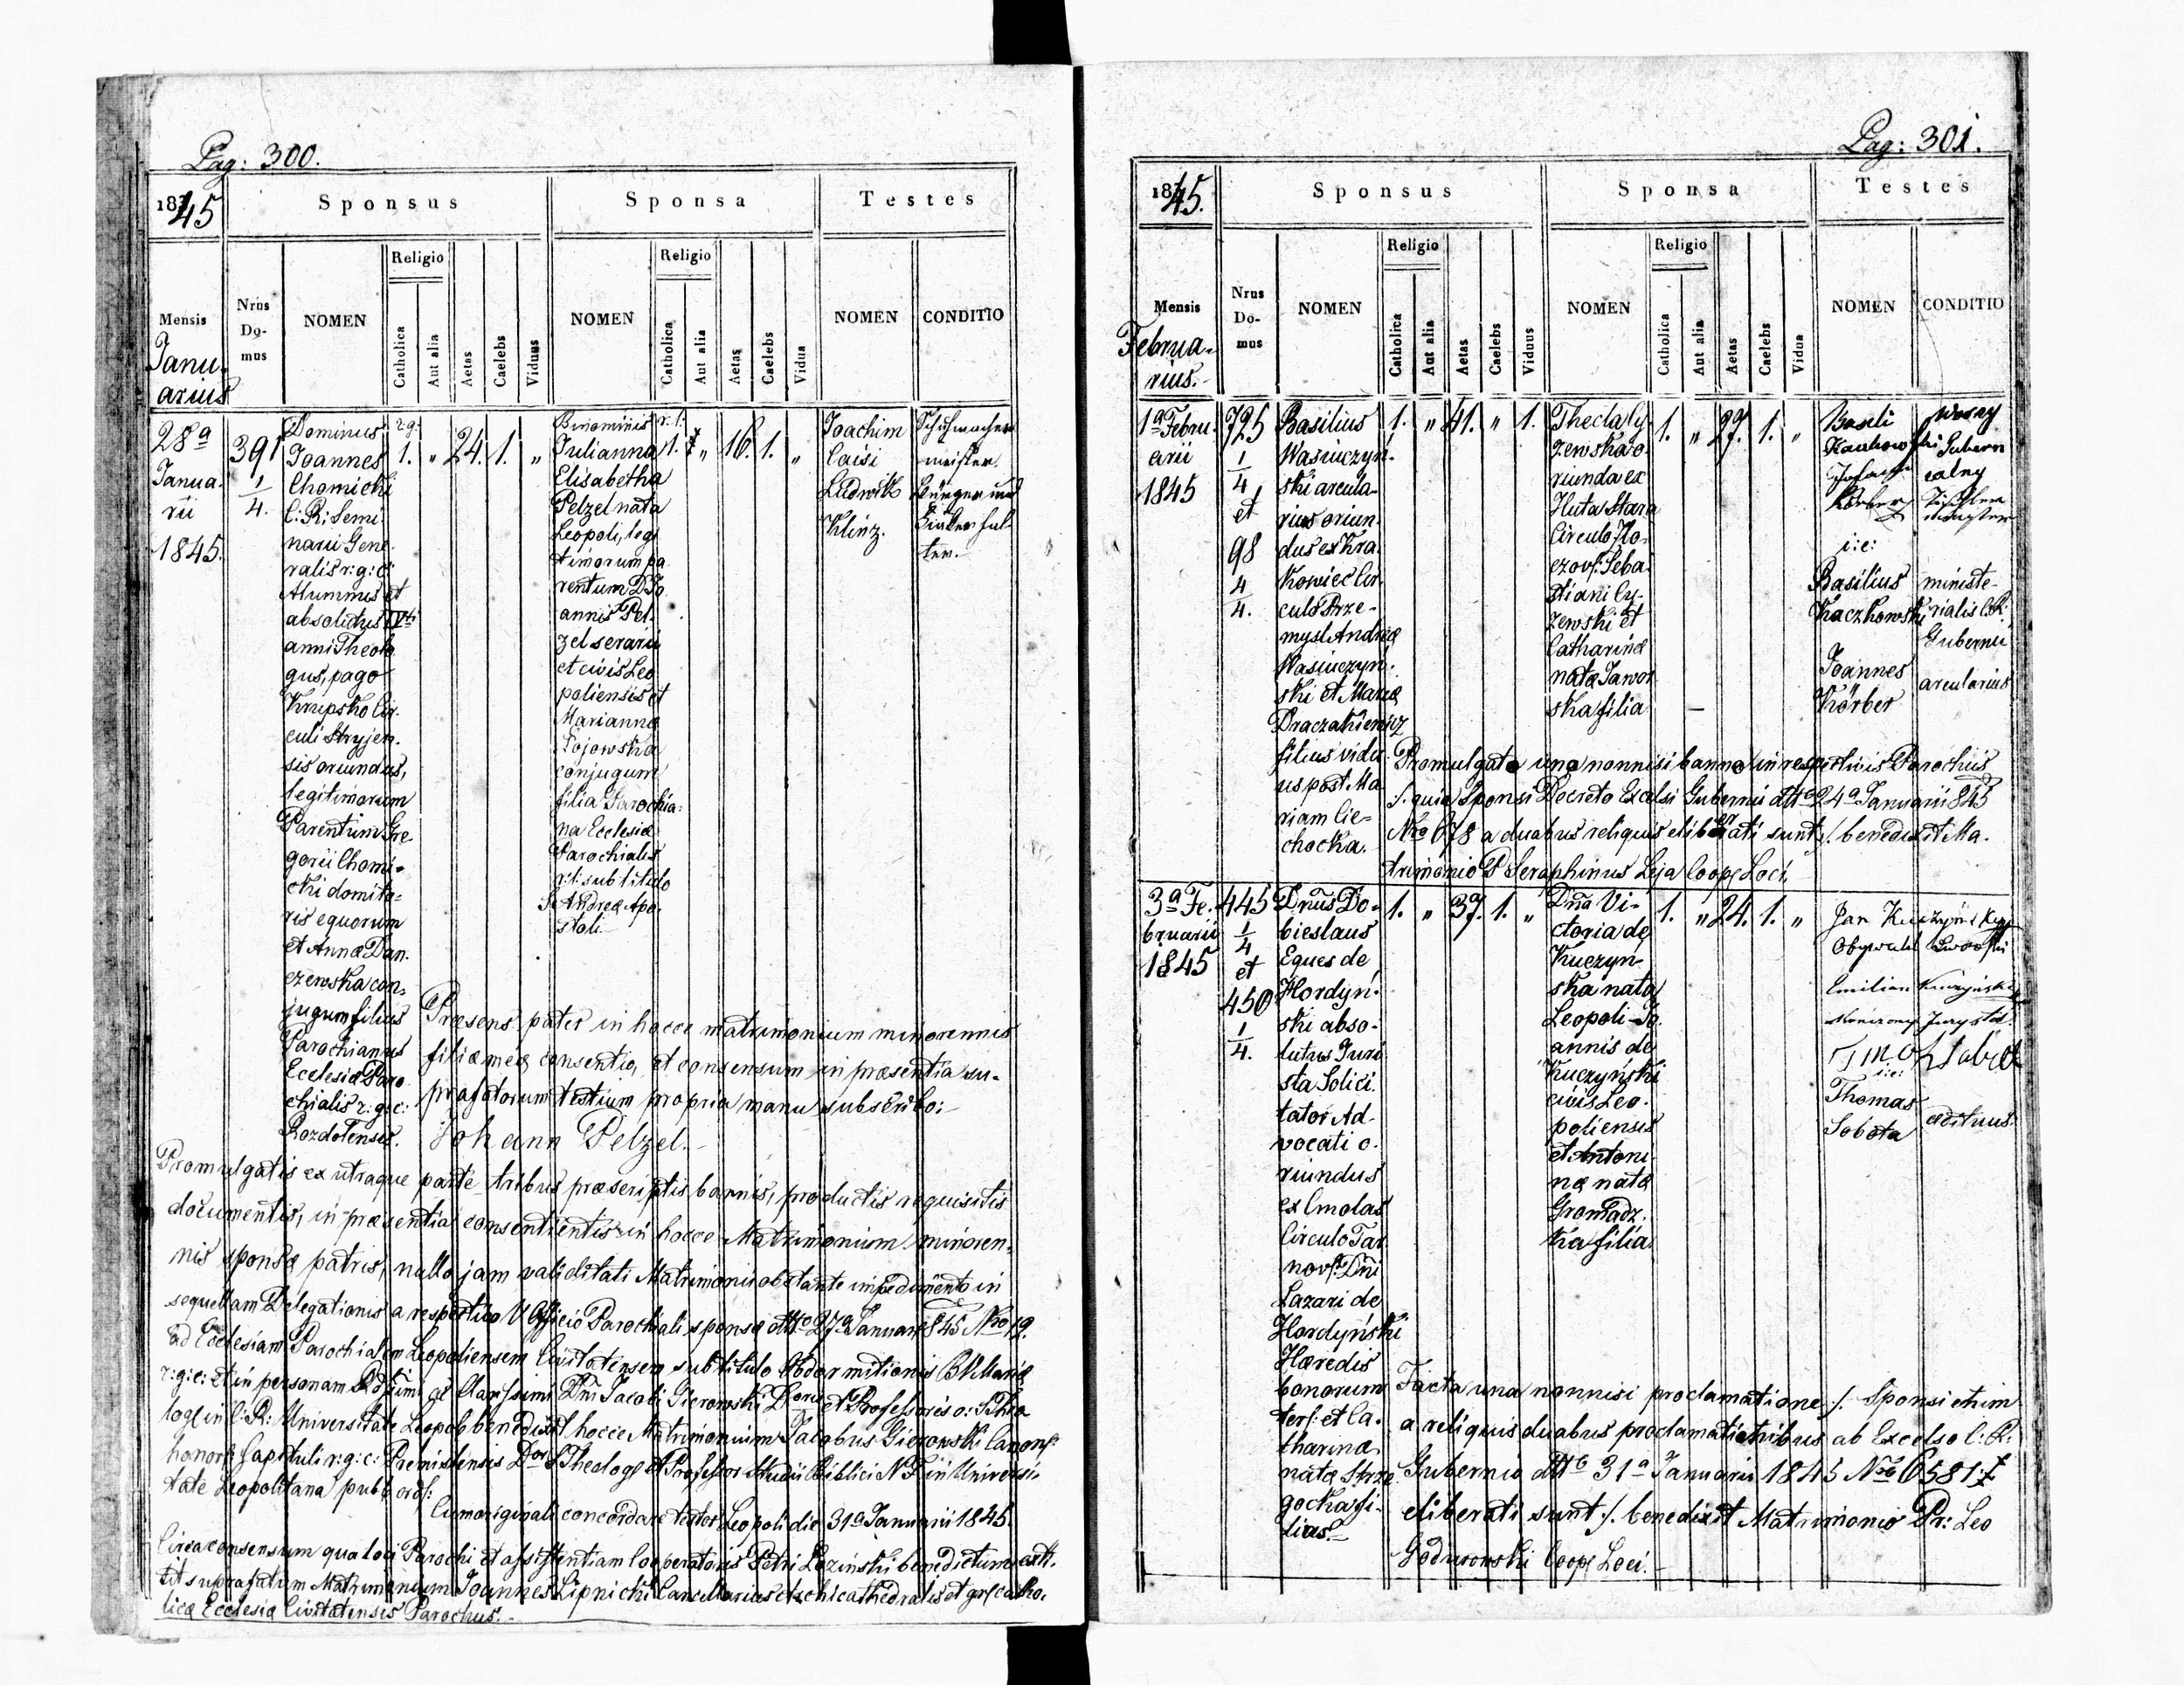 Pag: 300.
1845
Sponsus
Sponsa
Testes
Mensis
Janu-
arius
Nrus
Do-
mus
NOMEN
Religio
Catholica
Aut alia
Aetas
Caelebs
Viduus
NOMEN
Religio
Catholica
Aut alia
Aetas
Caelebs
Vidua
NOMEN
CONDITIO
28a
Janua-
rii
1845.
391
1
4.
Dominus
Joannes
Chomicki
C: R: Semi-
narii Gene-
ralis r: g: c:
Alumnus et
absolutus IVti
anni Theolo-
gus, pago
Krupsko Cir-
culi Stryjen-
sis oriundus,
legitimorum
Parentum Gre-
gorii Chomi-
cki domito-
ris equorum
et Anna Dan-
czewska con-
jugum filius
Parochianus
Ecclesiæ Paro-
chialis r: g: c:
Rozdolensis.
r. g.
1. " 24. 1. "
Binominis
Julianna
Elisabetha
Pelzel nata
Leopoli, legi-
timorum pa-
rentum D. Jo-
annis Pel-
zel serarii
et civis Leo-
poliensis et
Marianna
Fojowska
conjugum
filia Parochia-
na Ecclesiæ
Parochialis
r: l: sub titulo
S. Andreæ Apo-
stoli
r. l.
1. " 16. 1. "
Joachim
Caisi
Ludwik
Klinz.
Schuhmacher
meister.
Bürger und
Præsens pater in hocce matrimonium minorennis
filiæ meæ consentio, et consensum in præsentia su-
prafatorum testium propria manu subscribo:
Johann Pelzel.
Promulgatis ex utraque parte tribus præscriptis bannis, productis requisitis
documentis, in præsentia consentientis in hocce Matrimonium minoren-
nis sponsæ patris, nullo jam validitati Matrimonii obstante impedimento in
sequellam Delegationis a respectivo V. Officio Parochiali sponsæ ddto 27a Januarii 845 Nro 19.
ad Ecclesiam Parochialem Leopoliensem Civitatensem sub titulo Dormitionis B. V. Mariæ
r: g: c: et in personam Adsum. ac Clarissimi Dni Jacobi Gierowski Doris et Professoris o: S. Theo-
log: in C: R: Universitate Leopol. benedixit hocce Matrimonium Jacobus Gierowski Canon:
honor: Capituli r: g: c: Premisliensis Dor S. Theolog: et Professor Studii Biblici N. F. in Universi-
tate Leopolitana publ. ord:
Cum originali concordare testor Leopoli die 31a Januarii 1845.
Circa consensum qua loci Parochi et assistentiam Cooperatoris Petri Lozinski benedictum exti-
tit suprafatum Matrimonium Joannes Lipnicki Cancellarius et archicathedralis et gr: catho-
licæ Ecclesiæ Civitatensis Parochus.
Pag: 301.
1845.
Sponsus
Sponsa
Testes
Mensis
Februa-
rius.
Nrus
Do-
mus
NOMEN
Religio
Catholica
Aut alia
Aetas
Caelebs
Viduus
NOMEN
Religio
Catholica
Aut alia
Aetas
Caelebs
Vidua
NOMEN
CONDITIO
1a Febru-
arii
1845
725
1
4
et
98
4
4.
Basilius
Wasiuczyń-
ski arcula-
rius oriun-
dus ex Kra-
kowiec Cir-
culo Prze-
mysl Andreæ
Wasiuczyń-
ski et Mariæ
Draczakiewicz
filius vidu-
us post Ma-
riam Cie-
chocka.
1. " 41. " 1.
Thecla Cy-
zewska o-
riunda ex
Huta Stara
Circulo Zło-
czov: Seba-
stiani Cy-
zewski et
Catharinæ
nata Jawor-
ska filia
1. " 27. 1. "
Waseli
Kaczkowski
Johann
Körber
i: e:
Basilius
Kaczkowski
Joannes
Körber
Wozny
Gubern
ialny
Tischler
meister
ministe-
rialis C. R.
Gubernii
arcularius
Promulgata una nonnisi banna in respectivis Parochiis
/. quia Sponsi Decreto Excelsi Gubernii ddto 24a Januarii 845
Nro 678 a duabus reliquis eliberati sunt ./ benedixit Ma-
trimonio P. Seraphinus Leja Coop. Loci.
3a Fe-
bruarii
1845
445
1
4
et
450
1
4.
Dnus Do-
bieslaus
Eques de
Hordyń-
ski abso-
lutus Juri-
sta Solici-
tator Ad-
vocati o-
riundus
ex Cmolas
Circulo Tar-
nov: Dni
Lazari de
Hordyński
Hæredis
bonorum
terr: et Ca-
tharinæ
natæ Strze-
gocka fi-
lius.
1. " 37. 1. "
Dna Vi-
ctoria de
Kuczyn-
ska nata
Leopoli Jo-
annis de
Kuczyński
civis Leo-
poliensis
et Antoni-
næ natæ
Gromadz-
ka filia.
1. " 24. 1. "
Jan Kuczyński
Obywatel Lwowski
Emilian Kuczyński
skończony Jurysta.
i: e:
Thomas
Sobota
ædituus.
Facta una nonnisi proclamatione /. Sponsi etenim
a reliquis duabus proclamationibus ab Excelso C: R:
Gubernio ddto 31a Januarii 1845 Nro 6581
eliberati sunt ./ benedixit Matrimonio Pr: Leo
Godurowski Coop. Loci.